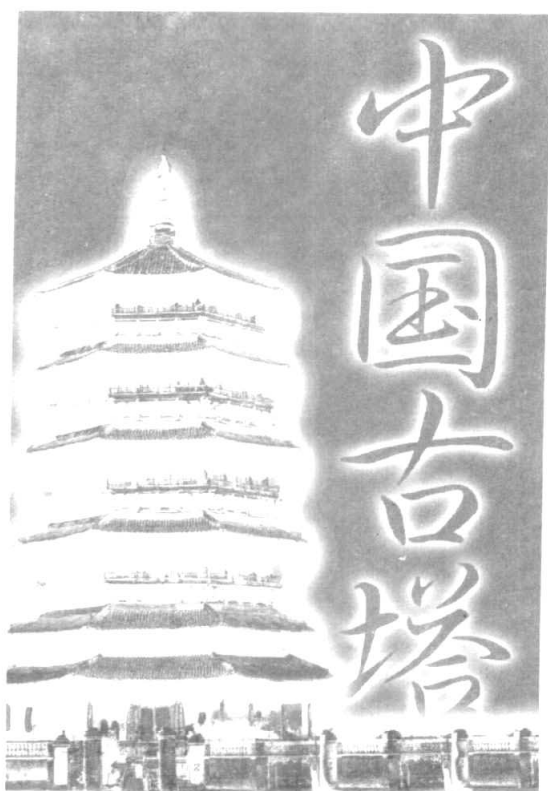 中国古塔